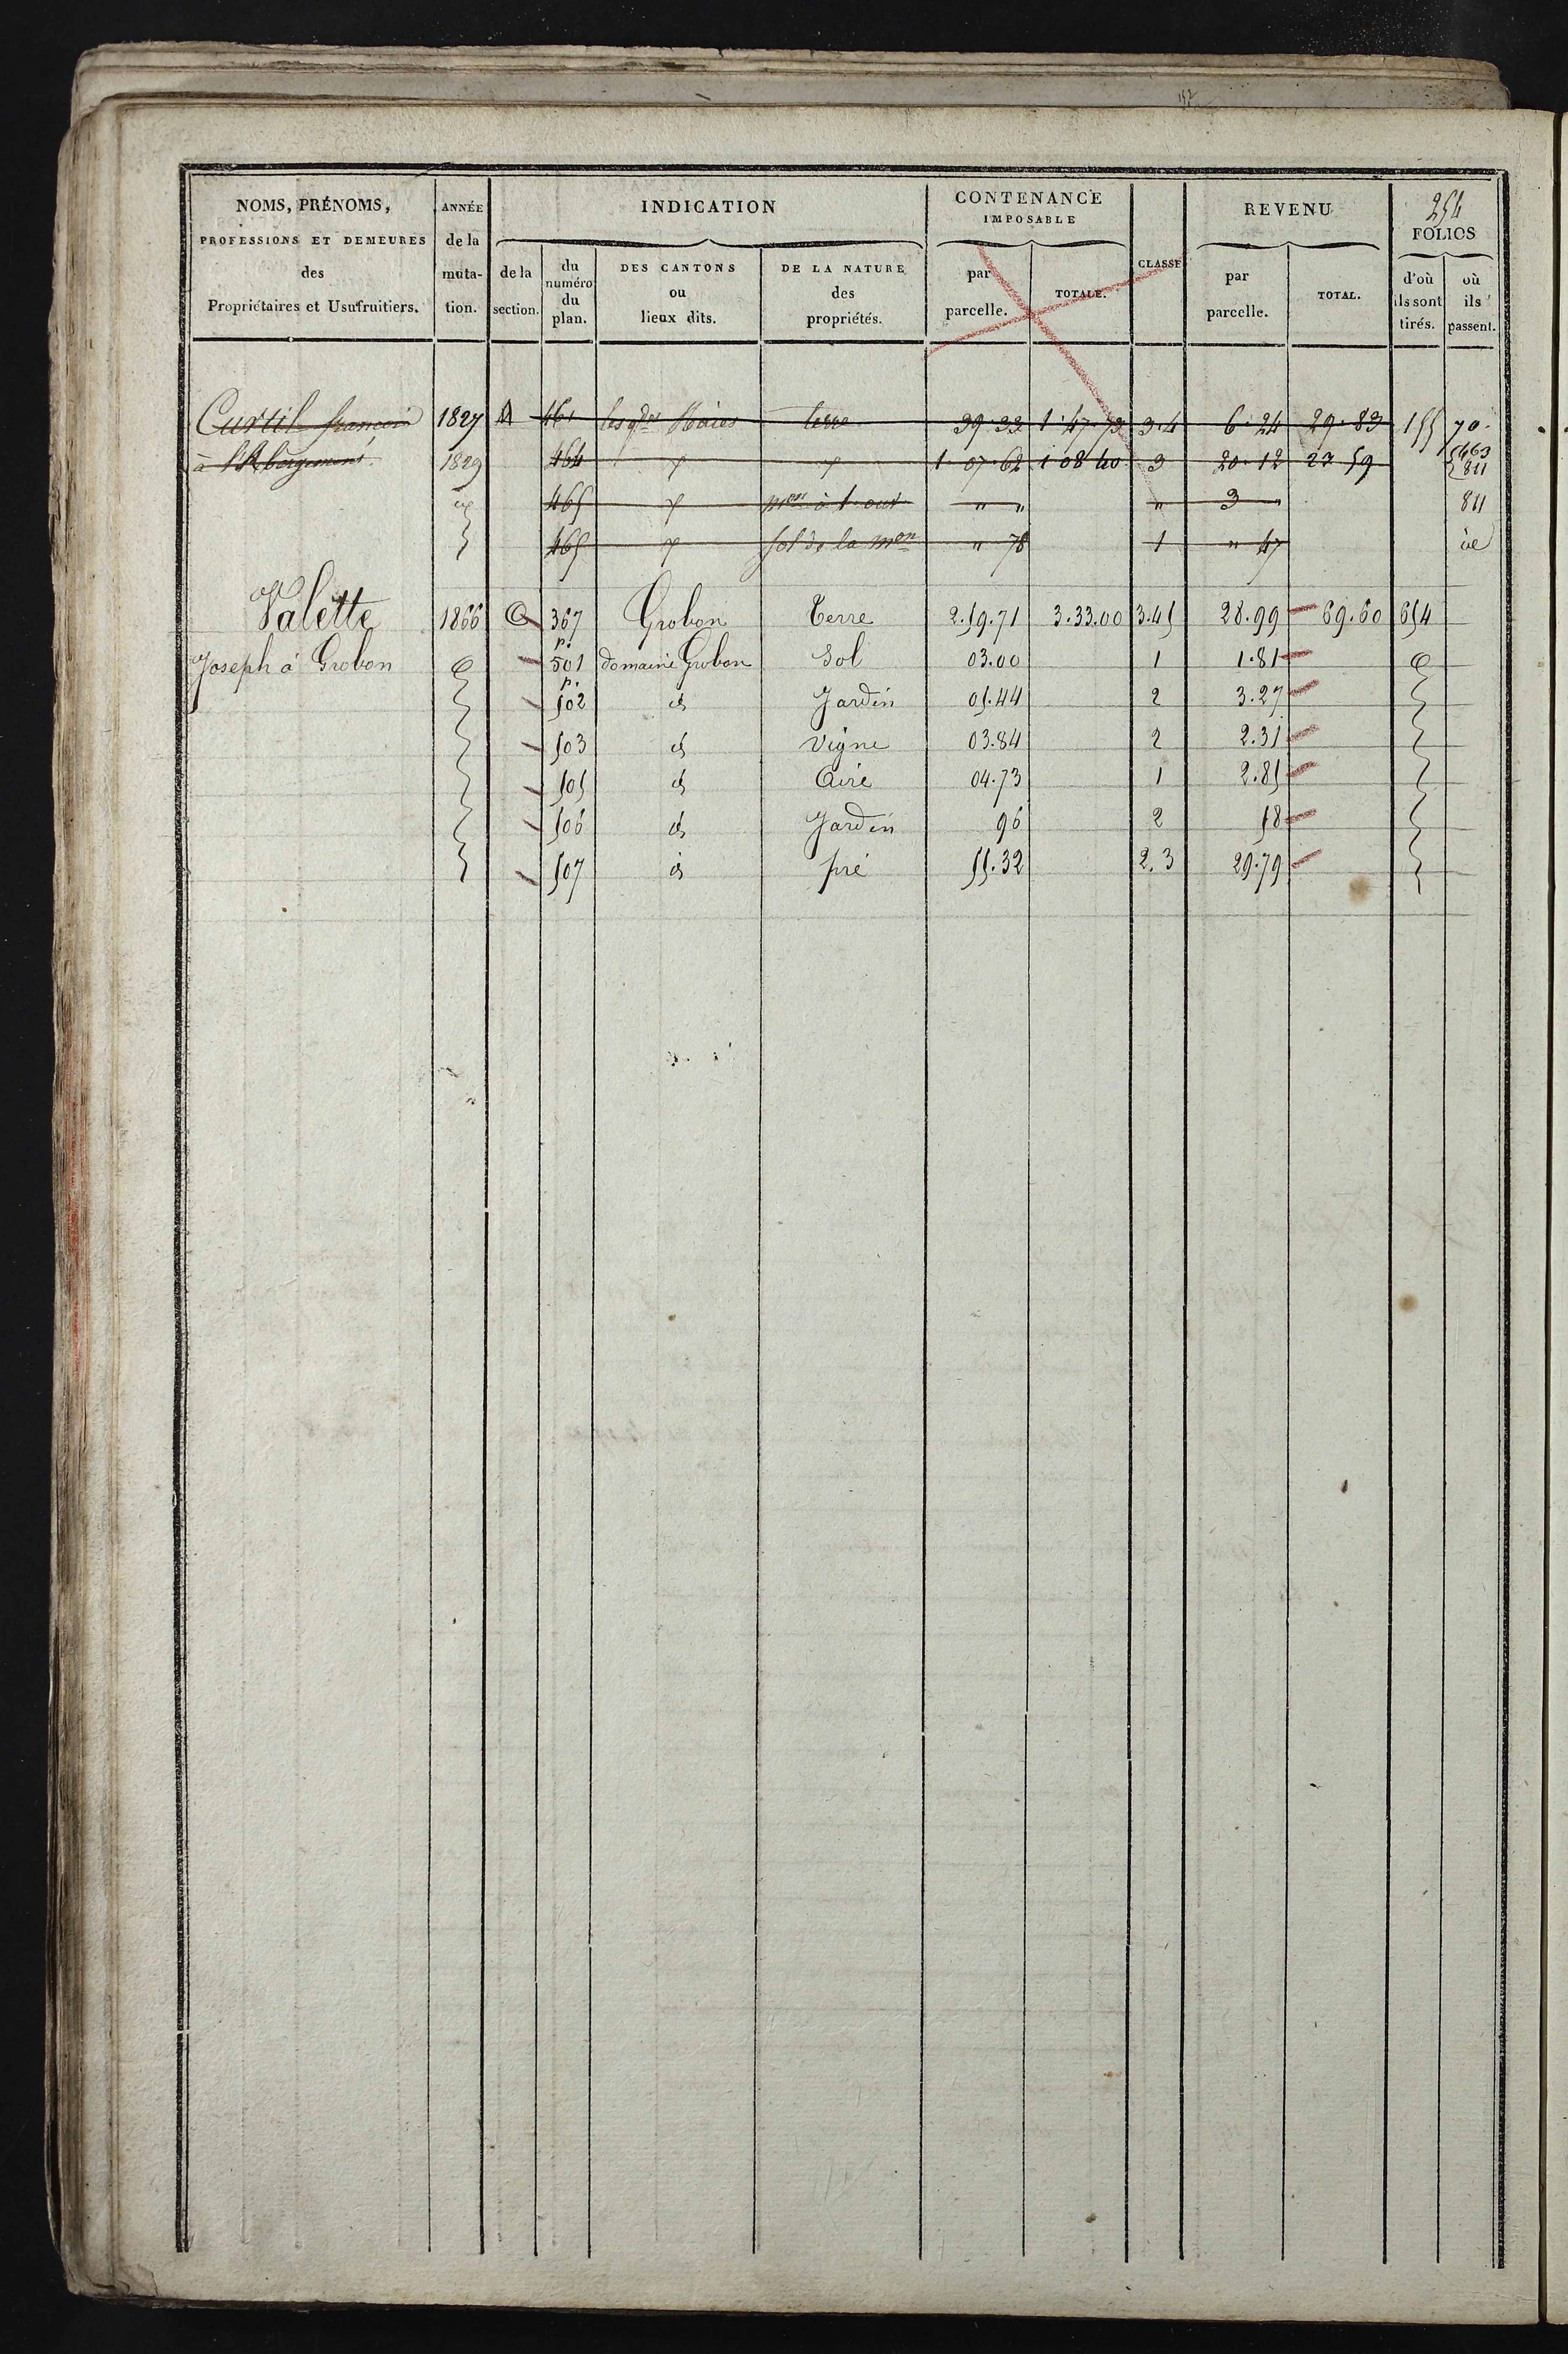 152
254
NOMS, PRÉNOMS, ANNÉE INDICATION CONTENANCE REVENU FOLIOS
PROFESSIONS ET DEMEURES de la IMPOSABLE
des muta- de la du DES CANTONS DE LA NATURE par TOTALE. CLASSE par TOTAL. d'où où
Propriétaires et Usufruitiers. tion. section. numéro du plan. ou lieux dits. des propriétés. parcelle. parcelle. ils sont tirés. ils passent.
Curtil françois 1827 A 461 les gdes Haies terre 39.33 1.47.73 3.4 6.24 29.83 155 70
à l'Abergement 1829 464 1.07.62 1 08 40 3 20.12 27 59 463
811
465 " " " 3 " 811
465 sol de la mon " 78 1 " 47
Valette 1866 367 Grobon Terre 2.59.71 3.33.00 3.45 28.99 69.60 654
p.
Joseph à Grobon 501 domaine Grobon Sol 03.00 1 1.81
p.
502 Jardin 05.44 2 3.27
503 Vigne 03.84 2 2.31
505 Aire 04.73 1 2.85
506 Jardin 96 2 58
507 pré 55.32 2.3 29.79